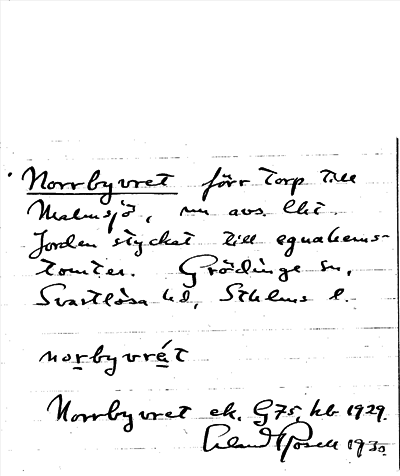 Norrbyvret förr torp till
Malmsjö, nu avs. lht.
Jorden styckat till egnahems-
tomter. Grödinge sn,
Svartlösa hd, Sthlms l.
norbyvrét
Norrbyvret ek. G75, hb 1929.
Erland Rosell 1930.